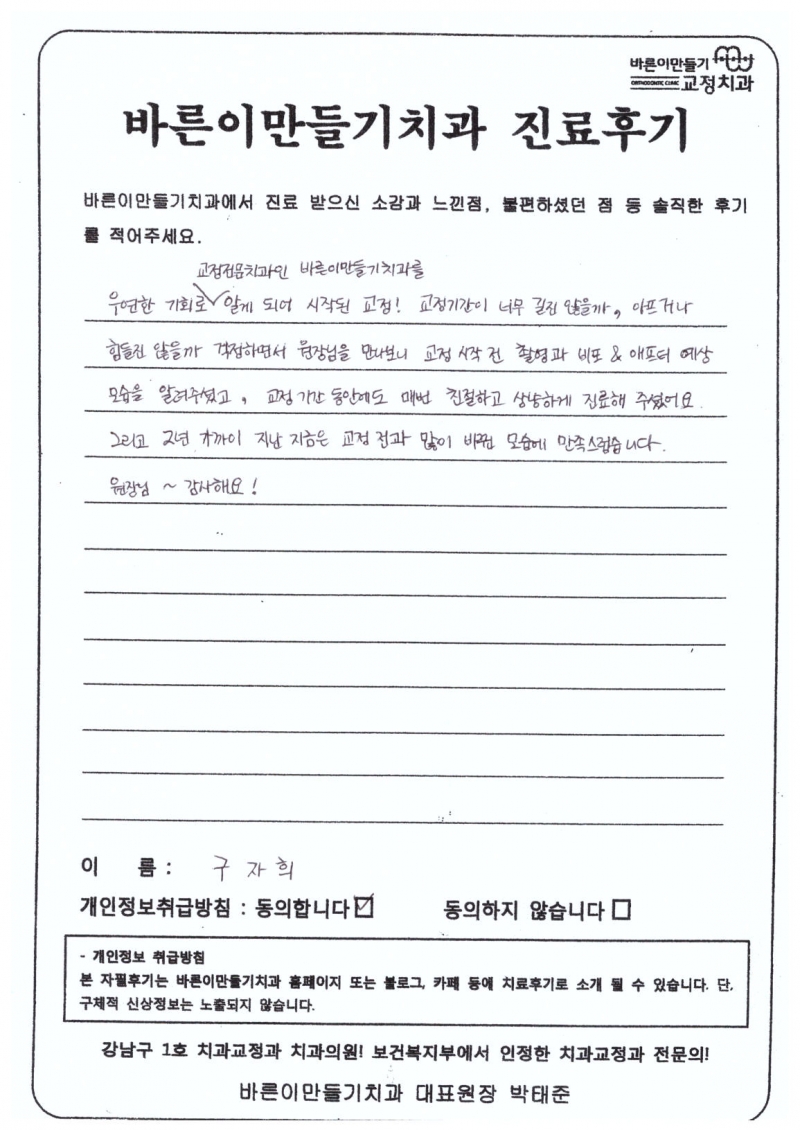 바른이만들기
ORTHODONTIC CLINIC 교정치과
바른이만들기치과 진료후기
바른이만들기치과에서 진료 받으신 소감과 느낀점, 불편하셨던 점 등 솔직한 후기
를 적어주세요.
교정전문치과인 바른이만들기치과를
우연한 기회로 알게 되어 시작된 교정! 교정기간이 너무 길진 않을까, 아프거나
힘들진 않을까 걱정하면서 원장님을 만나보니 교정 시작 전 촬영과 비포 & 애프터 예상
모습을 알려주셨고, 교정 기간 동안에도 매번 친절하고 상냥하게 진료해 주셨어요.
그리고 2년 가까이 지난 지금은 교정 전과 많이 바뀐 모습에 만족스럽습니다.
원장님 ~ 감사해요!
이 름 : 구자희
개인정보취급방침 : 동의합니다 ☑ 동의하지 않습니다 □
- 개인정보 취급방침
본 자필후기는 바른이만들기치과 홈페이지 또는 블로그, 카페 등에 치료후기로 소개 될 수 있습니다. 단,
구체적 신상정보는 노출되지 않습니다.
강남구 1호 치과교정과 치과의원! 보건복지부에서 인정한 치과교정과 전문의!
바른이만들기치과 대표원장 박태준